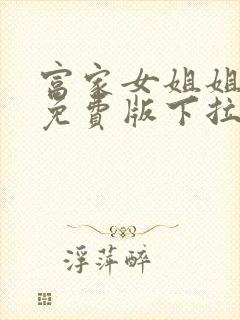 富家女姐姐
免費版下拉
浮萍醉